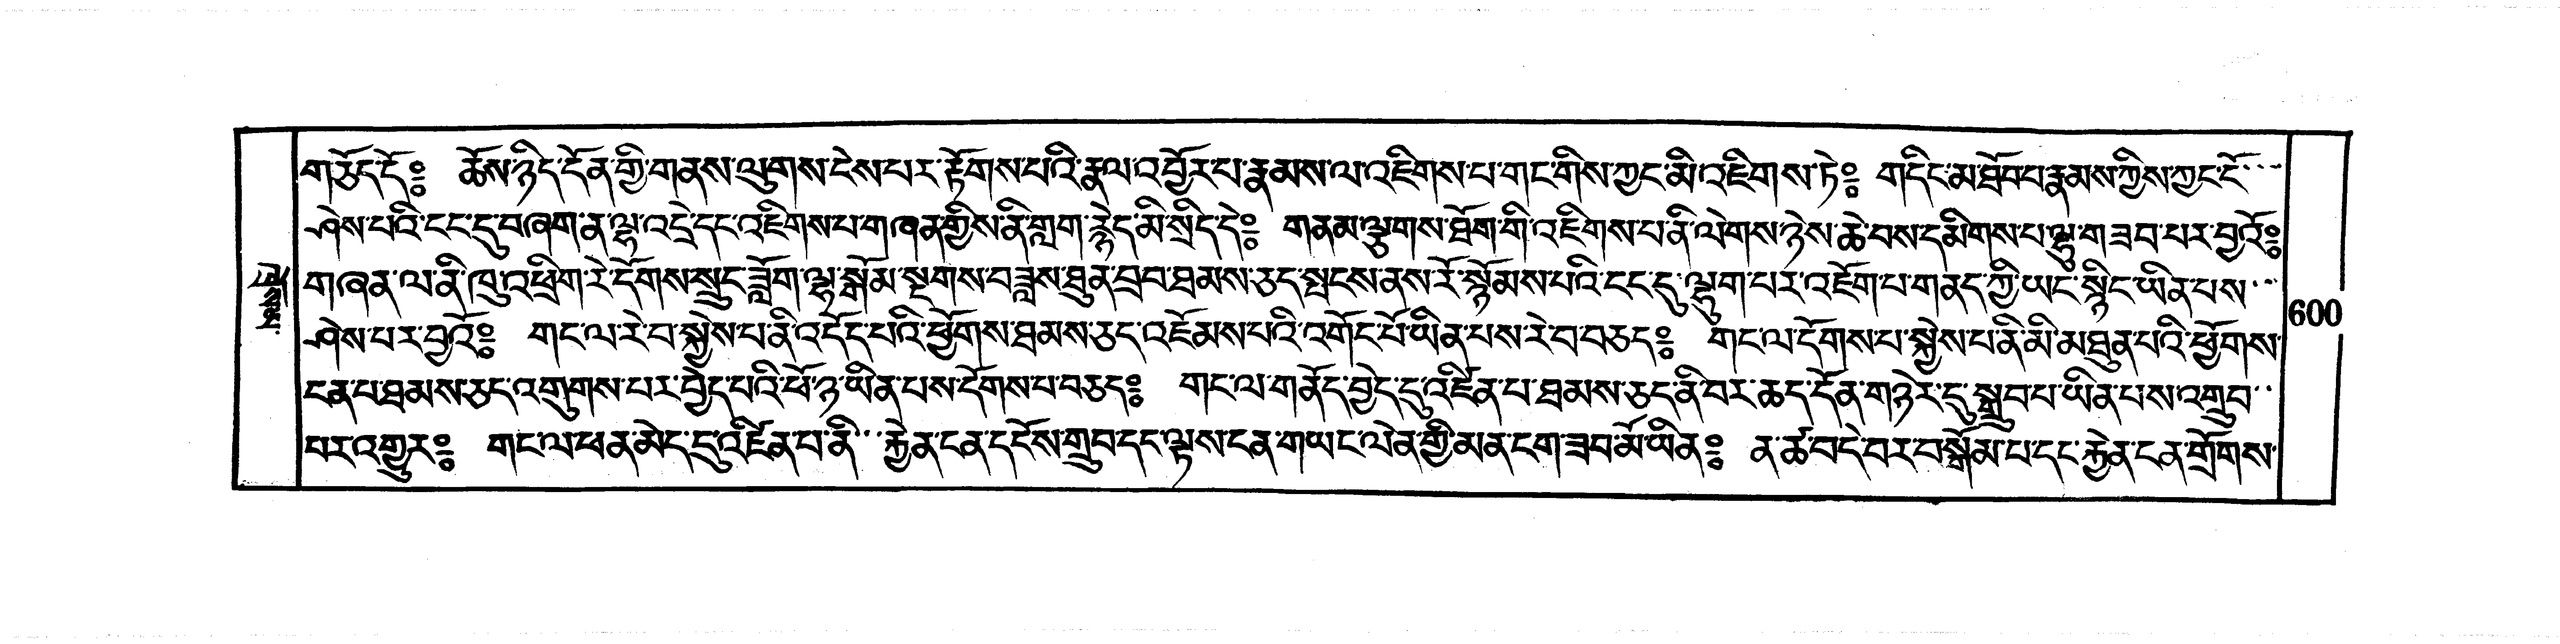 གཅོད་དོ༔ ཆོས་ཉིད་དོན་གྱི་གནས་ལུགས་ངེས་པར་རྟོགས་པའི་རྣལ་འབྱོར་པ་རྣམས་ལ་འཇིགས་པ་གང་གིས་ཀྱང་མི་འཇིགས་ཏེ༔ གདིང་མ་ཐོབ་པ་རྣམས་ཀྱིས་ཀྱང་ངོ་
ཤེས་པའི་ངང་དུ་བཞག་ན་ལྷ་འདྲེ་དང་འཇིགས་པ་གཞན་གྱིས་ནི་གླག་རྙེད་མི་སྲིད་དེ༔ གནམ་ལྕགས་ཐོག་གི་འཇིགས་པ་ནི་ལེགས་ཉེས་ཆེ་བས་དམིགས་པ་ལྷུ་གཟབ་པར་བྱའོ༔
གཞན་ལ་ནི་ཁུ་འཕྲིག་རེ་དོགས་སྲུང་ཟློག་ལྷ་སྒོམ་སྔགས་བཟླས་ཐུན་བྲབ་ཐམས་ཅད་སྤངས་ནས་རོ་སྙོམས་པའི་ངང་དུ་ལྷུག་པར་འཇོག་པ་གནད་ཀྱི་ཡང་སྙིང་ཡིན་པས་
ཤེས་པར་བྱའོ༔ གང་ལ་རེ་བ་སྐྱེས་པ་ནི་འདོད་པའི་ཕྱོགས་ཐམས་ཅད་འཇོམས་པའི་འགོང་པོ་ཡིན་པས་རེ་བ་བཅད༔ གང་ལ་དོགས་པ་སྐྱེས་པ་ནི་མི་མཐུན་པའི་ཕྱོགས་
ངན་པ་ཐམས་ཅད་འགུགས་པར་བྱེད་པའི་ཕོ་ཉ་ཡིན་པས་དོགས་པ་བཅད༔ གང་ལ་གནོད་བྱེད་དུ་འཛིན་པ་ཐམས་ཅད་ནི་བར་ཆད་དོན་གཉེར་དུ་སྒྲུབ་པ་ཡིན་པས་འགྲུབ་
བར་འགྱུར༔ གང་ལ་ཕན་མེད་དུ་འཛིན་པ་ནི་རྐྱེན་ངན་དངོས་གྲུབ་དང་ལྟས་ངན་གཡང་ལེན་གྱི་མན་ངག་ཟབ་མོ་ཡིན༔ ན་ཚ་བདེ་བར་བསྒོམ་པ་དང་རྐྱེན་ངན་གྲོགས་
600